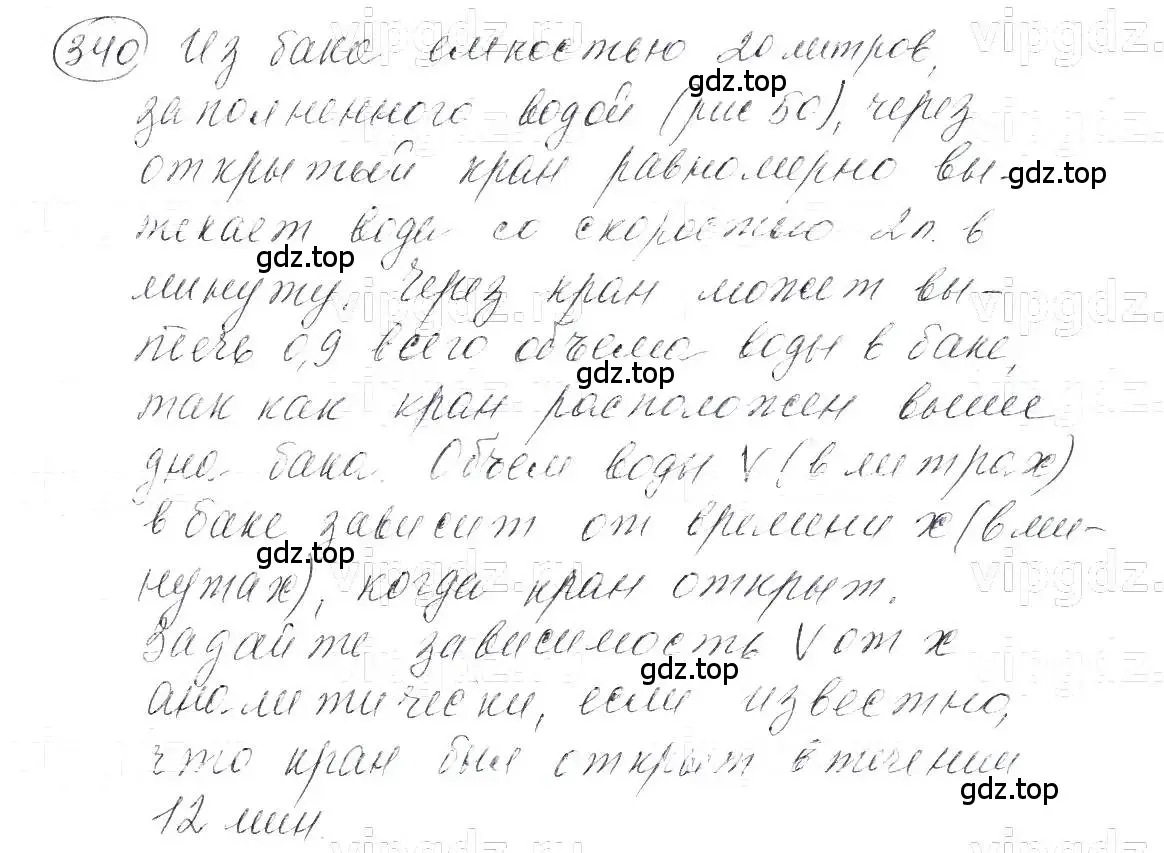 340 Из бака емкостью 20 литров,
заполненного водой (рис 50), через
открытый кран равномерно вы-
текает вода со скоростью 2л. в
минуту. Через кран может вы-
течь 0,9 всего объема воды в баке,
так как кран расположен выше
дна бака. Объем воды V (в литрах)
в баке зависит от времени x (в ми-
нутах), когда кран открыт.
Задайте зависимость V от x
аналитически, если известно,
что кран был открыт в течении
12 мин.
gdz.top
gdz.top
gdz.top
gdz.top
gdz.top
gdz.top
gdz.top
vipgdz.ru
vipgdz.
vipgdz.ru
vipgdz.
vipgdz.ru
vipgdz.
vipgdz.ru
vipgdz.